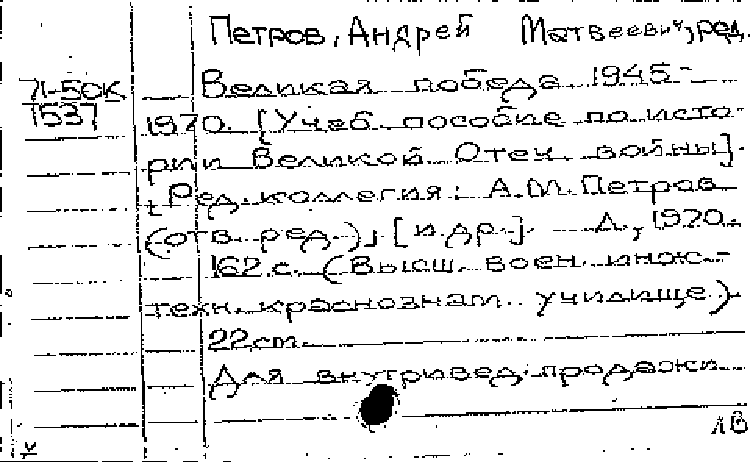 Петров, Андрей Матвеевич, ред.
71-50К
1537
Великая победа 1945-
1970. [Учеб. пособие по исто-
рии Великой Отеч. войны].
[Ред. коллегия: А.М. Петров
(отв. ред.), [и др.]. Л., 1970.
162 с. (Высш. воен. инж.-
техн. краснознам. училище).
22 см.
Для внутривед. продажи
ЛВ